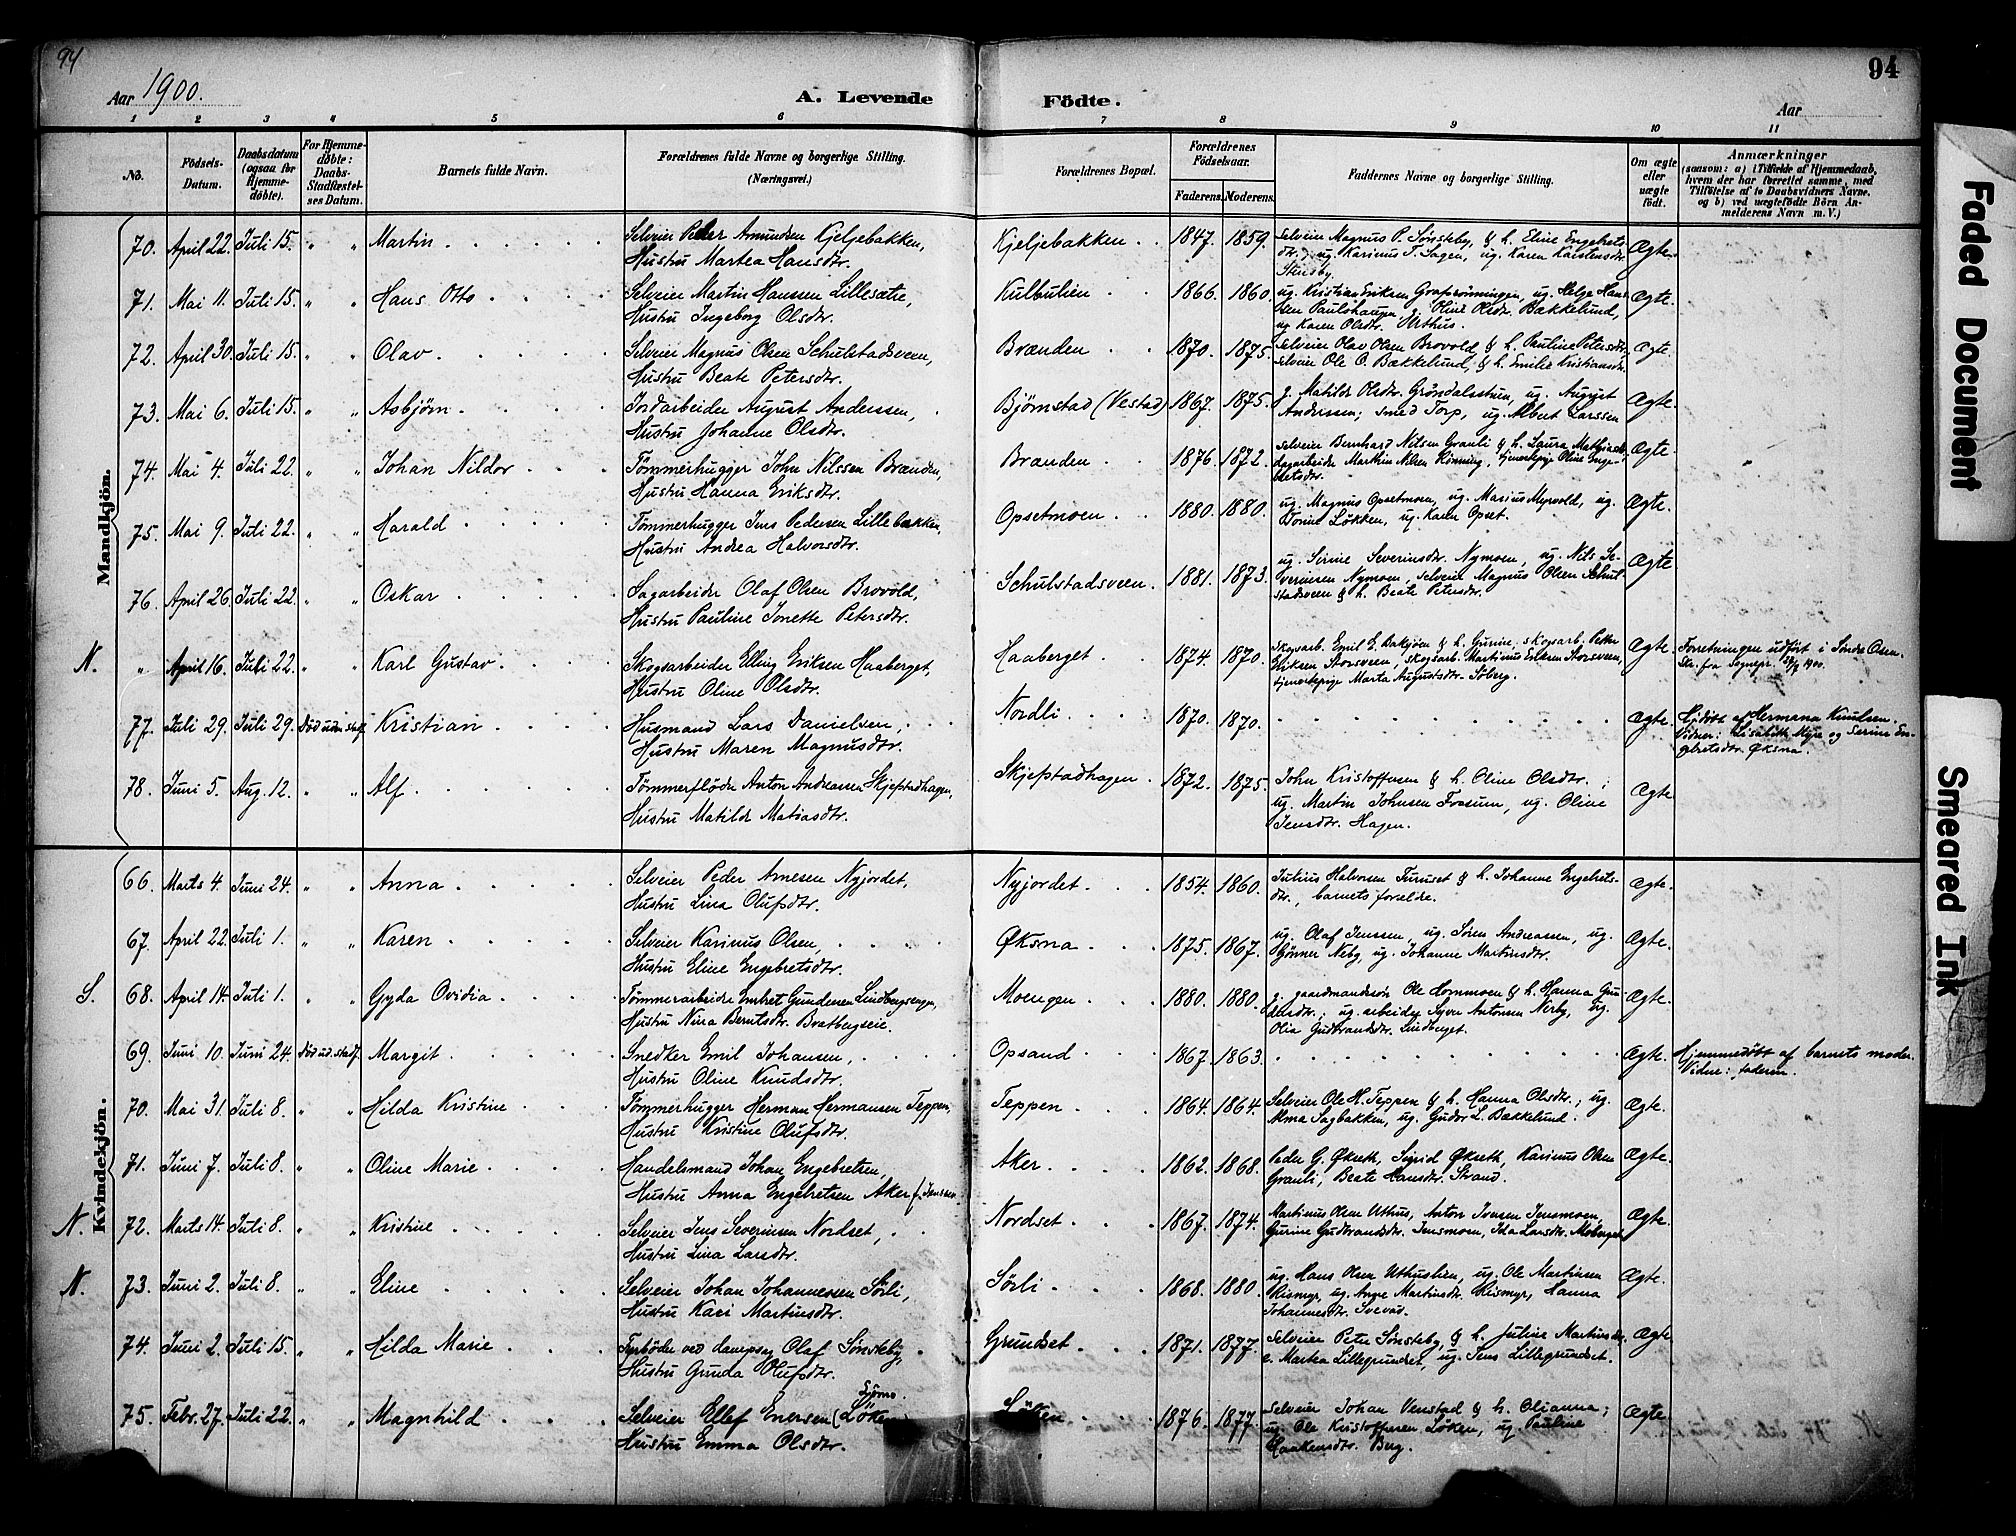 94
94
Aar 1900.
A. Levende Födte.
Aar
1 2 3 4 5 6 7 8 9 10 11
No.
Födsels-Datum.
Daabsdatum (ogsaa for Hjemme-döbte).
For Hjemme-döbte: Daabs-Stadfæstel-ses Datum.
Barnets fulde Navn.
Forældrenes fulde Navne og borgerlige Stilling. (Næringsvei.)
Forældrenes Bopæl.
Forældrenes Födselsaar.
Faderens. Moderens.
Faddernes Navne og borgerlige Stilling.
Om ægte eller uægte födt.
Anmærkninger
(saasom: a) i Tilfælde af Hjemmedaab, hvem der har forrettet samme, med Tilföielse af to Daabsvidners Navne, og b) ved uægtefödte Börn An-melderens Navn m. V.)
Mandkjön.
70. April 22. Juli 15. " " Martin Selveier Peder Amundsen Kjeljebakken, Hustru Martea Hansdtr. Kjeljebakken 1847. 1859. Selveier Magnus P. Sønsteby, & h. Eline Engebrets-dtr, ug. Karinus T. Sagen, ug. Karen Karstensdtr. Stensby. Ægte.
71. Mai 11. Juli 15. " " Hans Otto Selveier Martin Hanssen Lillesætre, Hustru Ingeborg Olsdtr. Kulbulien 1866. 1860. ug. Kristian Eriksen Grafsrønningen, ug. Helge Han-sen Paulshaugen, g. Oline Olsdtr. Bækkelund, ug. Karen Olsdtr. Uthus. Ægte.
72. April 30. Juli 15. " " Olav Selveier Magnus Olsen Schulstadsveen, Hustru Beate Petersdtr. Brænden 1870. 1875. Selveier Olav Olsen Brovold & h. Pauline Petersdtr, selveier Ole O. Bækkelund, & h. Emilie Kristiansdtr. Ægte.
73. Mai 6. Juli 15. " " Asbjørn Jordarbeider August Anderssen, Hustru Johanne Olsdtr. Bjørnstad (Vestad) 1867. 1875. g. Matilde Olsdtr. Grøndalsstuen, ug. August Anderssen; smed Torp, ug. Albert Larssen Ægte.
74. Mai 4. Juli 22. " " Johan Nildor Tømmerhugger John Nilssen Brænden, Hustru Hanna Eriksdtr. Brænden 1876. 1872. Selveier Bernhard Nilsen Granli & h. Laura Mathisdtr. dagarbeider Martin Nilsen Rønning, tjenestepige Oline Enge-bretsdtr. Ægte.
75. Mai 9. Juli 22. " " Harald Tømmerhugger Jens Pedersen Lillebækken, Hustru Andrea Halvorsdtr. Opsetmoen 1880. 1880. ug. Magnus Opsetmoen, ug. Marius Myrvold, ug. Løkken, ug. Karen Opset. Ægte.
76. April 26. Juli 22. " " Oskar Sagarbeider Olaf Olsen Brovold, Hustru Pauline Jonette Petersdtr. Schulstadsveen 1881. 1873. ug. Sirine Severinsdtr. Nymoen, ug. Nils Se-verinsen Nymoen, Selveier Magnus Olsen Schul-stadsveen & h. Beate Petersdtr. Ægte
N. " April 16. Juli 22. " " Karl Gustav Skogsarbeider Elling Eriksen Haaberget, Hustru Oline Olsdtr. Haaberget 1874. 1870. Skogsarb. Emil E. Bakjøen & h. Gurine. skogsarb. Peder Eriksen Storsveen, skogsarb. Martinus Eriksen Storsveen, tjenestepige Marta Augustsdtr. Søberg. Ægte. Forretningen udført i Søndre Osen. Skr. fra Sognepr. 1900.
77. Juli 29. Juli 29. Død uden stadf. Kristian Husmand Lars Danielsen, Hustru Maren Magnusdtr. Nordli 1870. 1870. Ægte. Hjdøbt af Hermana Knudsen. Vidner: Lisabeth Myre og Serine En-gebretsdtr. Øksna.
78. Juni 5. Aug. 12. " " Alf Tømmerfløder Anton Andreassen Skjefstadhagen, Hustru Matilde Matiasdtr. Skjefstadhagen 1872. 1875. John Kristoffersen & h. Oline Olsdtr.; ug. Martin Johnsen Frosum, ug. Oline Jensdtr. Hagen. Ægte
Kvindekjön.
66. Marts 4. Juni 24. " " Anna Selveier Peder Arnesen Nyjordet, Hustru Lina Olufsdtr. Nyjordet 1854. 1860. Julius Halvorsen Furuset & h. Johanne Engebrets-dtr., barnets forældre. Ægte.
67. April 22. Juli 1. " " Karen Selveier Karinus Olsen Hustru Eline Engebretsdtr. Øksna 1875. 1867. ug. Olaf Jenssen, ug. Søren Andreassen, ug. Gønner Neby ug. Johanne Martinsdtr. Ægte.
S. 68. April 14. Juli 1. " " Gyda Ovidia Tømmerarbeider Embret Gundersen Lindbergsengen, Hustru Nina Berntsdtr. Bratbergseie. Moengen 1880. 1880. g. gaardmandssøn Ole Hornmoen & h. Hanna Gun-dersdtr.; ug. arbeider Syver Antonsen Nerby, ug. Olia Gudbrandsdtr. Lindberget. Ægte.
69. Juni 10. Juni 24. Død ud. stadf. Margit Snedker Emil Johansen, Hustru Oline Knudsdtr. Opsand 1867. 1863. Ægte. Hjemmedøbt af barnets moder. Vidne: faderen.
70. Mai 31. Juli 8. " " Hilda Kristine Tømmerhugger Herman Hermansen Teppen, Hustru Kristine Olufsdtr. Teppen 1864. 1864. Selveier Ole H. Teppen & h. Hanna Olsdtr.; ug. Alma Sagbakken, ug. Gudor L. Bækkelund. Ægte.
71. Juni 7. Juli 8. " " Oline Marie Handelsmand Johan Engebretsen, Hustru Anna Engebretsen Aker f. Jenssen Aker 1862. 1868. Peder G. Økseth, Sigrid Økseth, Karinus Olsen Granli, Beate Hansdtr. Strand. Ægte.
N. 72. Marts 14. Juli 8. " " Kristine Selveier Jens Severinsen Nordset, Hustru Lina Larsdtr. Nordset 1867. 1874. Martinus Olsen Uthus, Anton Iversen Jensmoen, Gurine Gudbrandsdtr. Jensmoen, Ida Larsdtr. Moberget Ægte.
N. 73. Juni 2. Juli 8. " " Eline Selveier Johan Johannessen Sörli, Hustru Kari Martinsdtr. Sörli 1868. 1880. ug. Hans Olsen Uthuslien, ug. Ole Martinsen Rismyr, ug. Angre Martinsdtr. Rismyr, Hanna Johannesdtr. Ægte.
74. Juni 2. Juli 15. " " Hilda Marie Fyrbøder ved dampsag Olaf Sønsteby, Hustru Gunda Olufsdtr. Grundset 1871. 1877. Selveier Peter Sønsteby, & h. Juline Martinsdtr. e. Martea Lillegrundset, ug. Jens Lillegrundset. Ægte
75. Febr. 27. Juli 22. " " Magnhild Selveier Ellef Enersen (Løken) Hustru Emma Olsdtr. 1876. 1877. Selveier Johan Venstad & h. Olianna; ug. Ole Kristoffersen Løken, ug. Pauline Haakensdtr. Berg. Ægte.
Faded Document
Smeared Ink